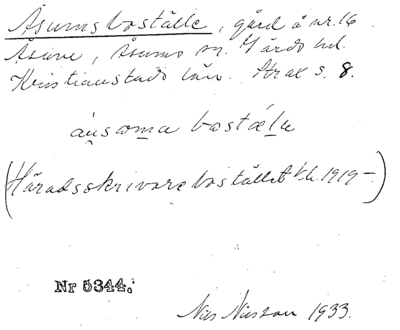 Åsumsboställe, gård å nr. 16
Åsum, Åsums sn. Gärds hd.
Kristianstads län. Strax s. 8.
åusoma bostælu
(Häradsskrivareboställe t. 1919-)
Nr 5344.
Nils Nilsson 1933.